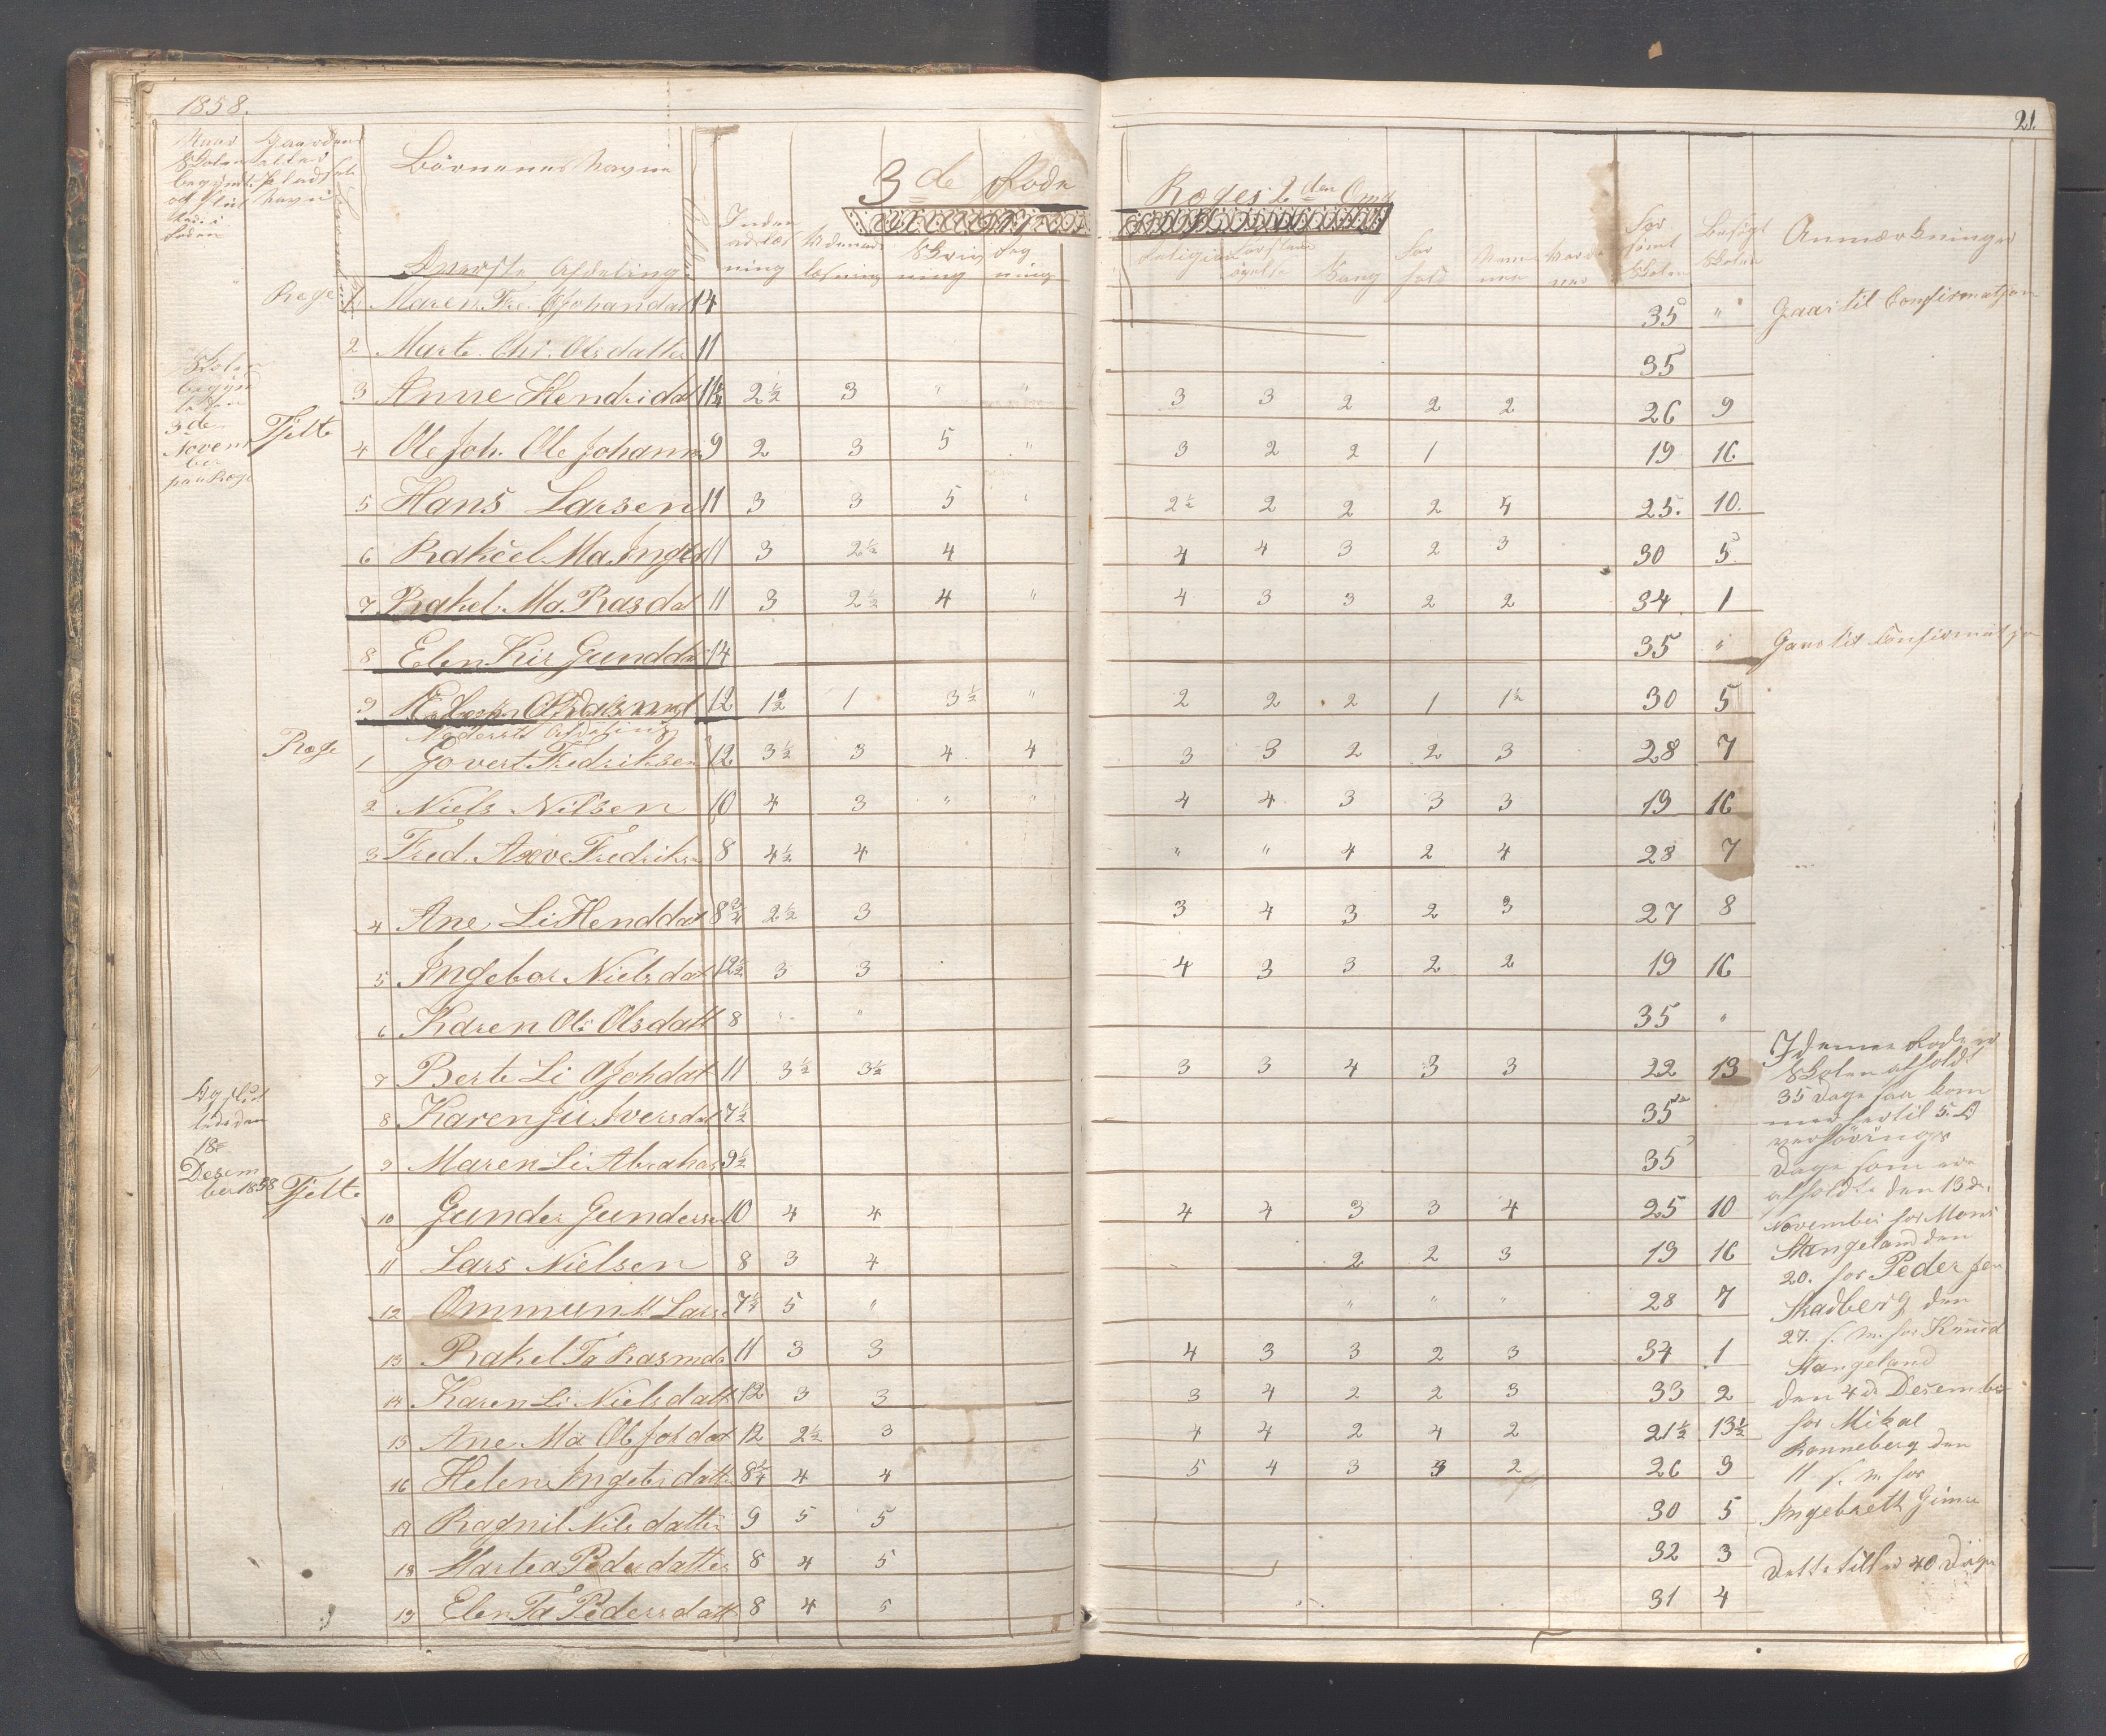 1858.
21.
3de Rode
Røges 2den Omg
Naar Skolen begyndt og slut
Gaardens eller Pladsens Navn
Børnenes Navne
Anmærkninger
Øverste Afdeling
Inden adlæs ning
Udenad læsning
Skriv ning
Reg ning
Religion
Forstands øvelse
Sang
For hold
For sømt Skolen
Besøgt Skolen
Røge 1 Maren Fre. 14 35 " Gaar til Confirmatjon
2 Marte. Chr. Olsdatter 11 35
3 Anne Hendridat 11 2½ 3 " " 3 3 2 2 2 26 9
Skolen begyndt den 3de November paa Røge
Tjelte
4 Ole Joh. Ole Johann 9 2 3 5 " 3 2 2 1 19 16
5 Hans Larsen 11 3 3 5 " 2½ 2 2 2 4 25. 10.
6 Rakel Ma. 11 3 2½ 4 4 4 3 2 3 30 5
7 Rakel Ma Rasdat 11 3 2½ 4 " 4 3 3 2 2 34 1
8 Elen Kir Gunddat 14 35 " Gaar til Confirmatjon
9 12 1½ 1 3½ " 2 2 2 1 1½ 30 5
Nederste Afdeling
Røge 1 Govert Fredriksen 12 3½ 3 4 4 3 3 2 2 3 28 7
2 Niels Nilsen 10 4 3 " " 4 4 3 3 3 19 16
3 Fred. Fredriks 8 4½ 4 " " 4 2 4 28 7
4 Ane Li Henddat 8¾ 2½ 3 3 4 3 2 3 27 8
5 Ingebor Nielsdat 12½ 3 3 4 3 3 2 2 19 16
6 Karen Ol. Olsdatt 8 " " 35 "
7 Berte Li Johdat 11 3½ 3½ 3 3 4 3 3 22 13
8 Karen Ju Iversdat 7½ 35
9 Maren Li Abraha 9½ 35
Og slut tedes den 18de Desem ber 1858
Tjelte
10 Gunder Gunderse 10 4 4 4 4 3 3 4 25 10
11 Lars Nielsen 8 3 4 2 2 3 19 16
12 Ommun M Larse 7½ 5 " " " " 28 7
13 Rakel Ta Rasmda 11 3 3 4 3 3 2 3 34 1
14 Karen Li Nielsdatt 12 3 3 3 4 2 2 3 33 2
15 Ane Ma Ol Johdat 12 2½ 3 4 4 2 4 2 21½ 13½
16 Helene Ingebrdatt 8¼ 4 4 5 4 3 3 2 26 9
17 Ragnil Nilsdatter 9 5 5 30 5
18 Martea Pedersdatter 8 4 5 32 3
19 Elen Ta Pedersdatt 8 4 5 31 4
I denne Rode er
Skolen afholdt
35 Dage saa kom
mer hertil 5. O
verhørings
Dage som ere
afholdte den 13de
November for Mons
Stangeland den
20. for Peder
Skadberg den
27. s. m. for Knud
Stangeland
den 4de Desember
for Mikal
Rønneberg den
11. s. m. for
Ingebreth Gimre
Dette til er 40 Dage